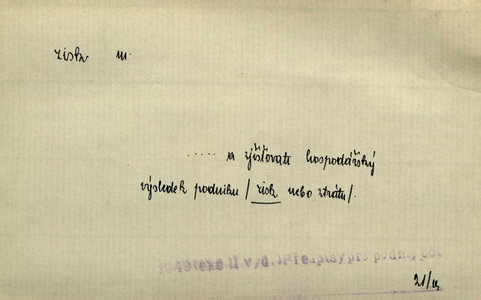 zisk m.
..... a zjišťovati hospodářský
výsledek podniku / zisk nebo ztrátu /.